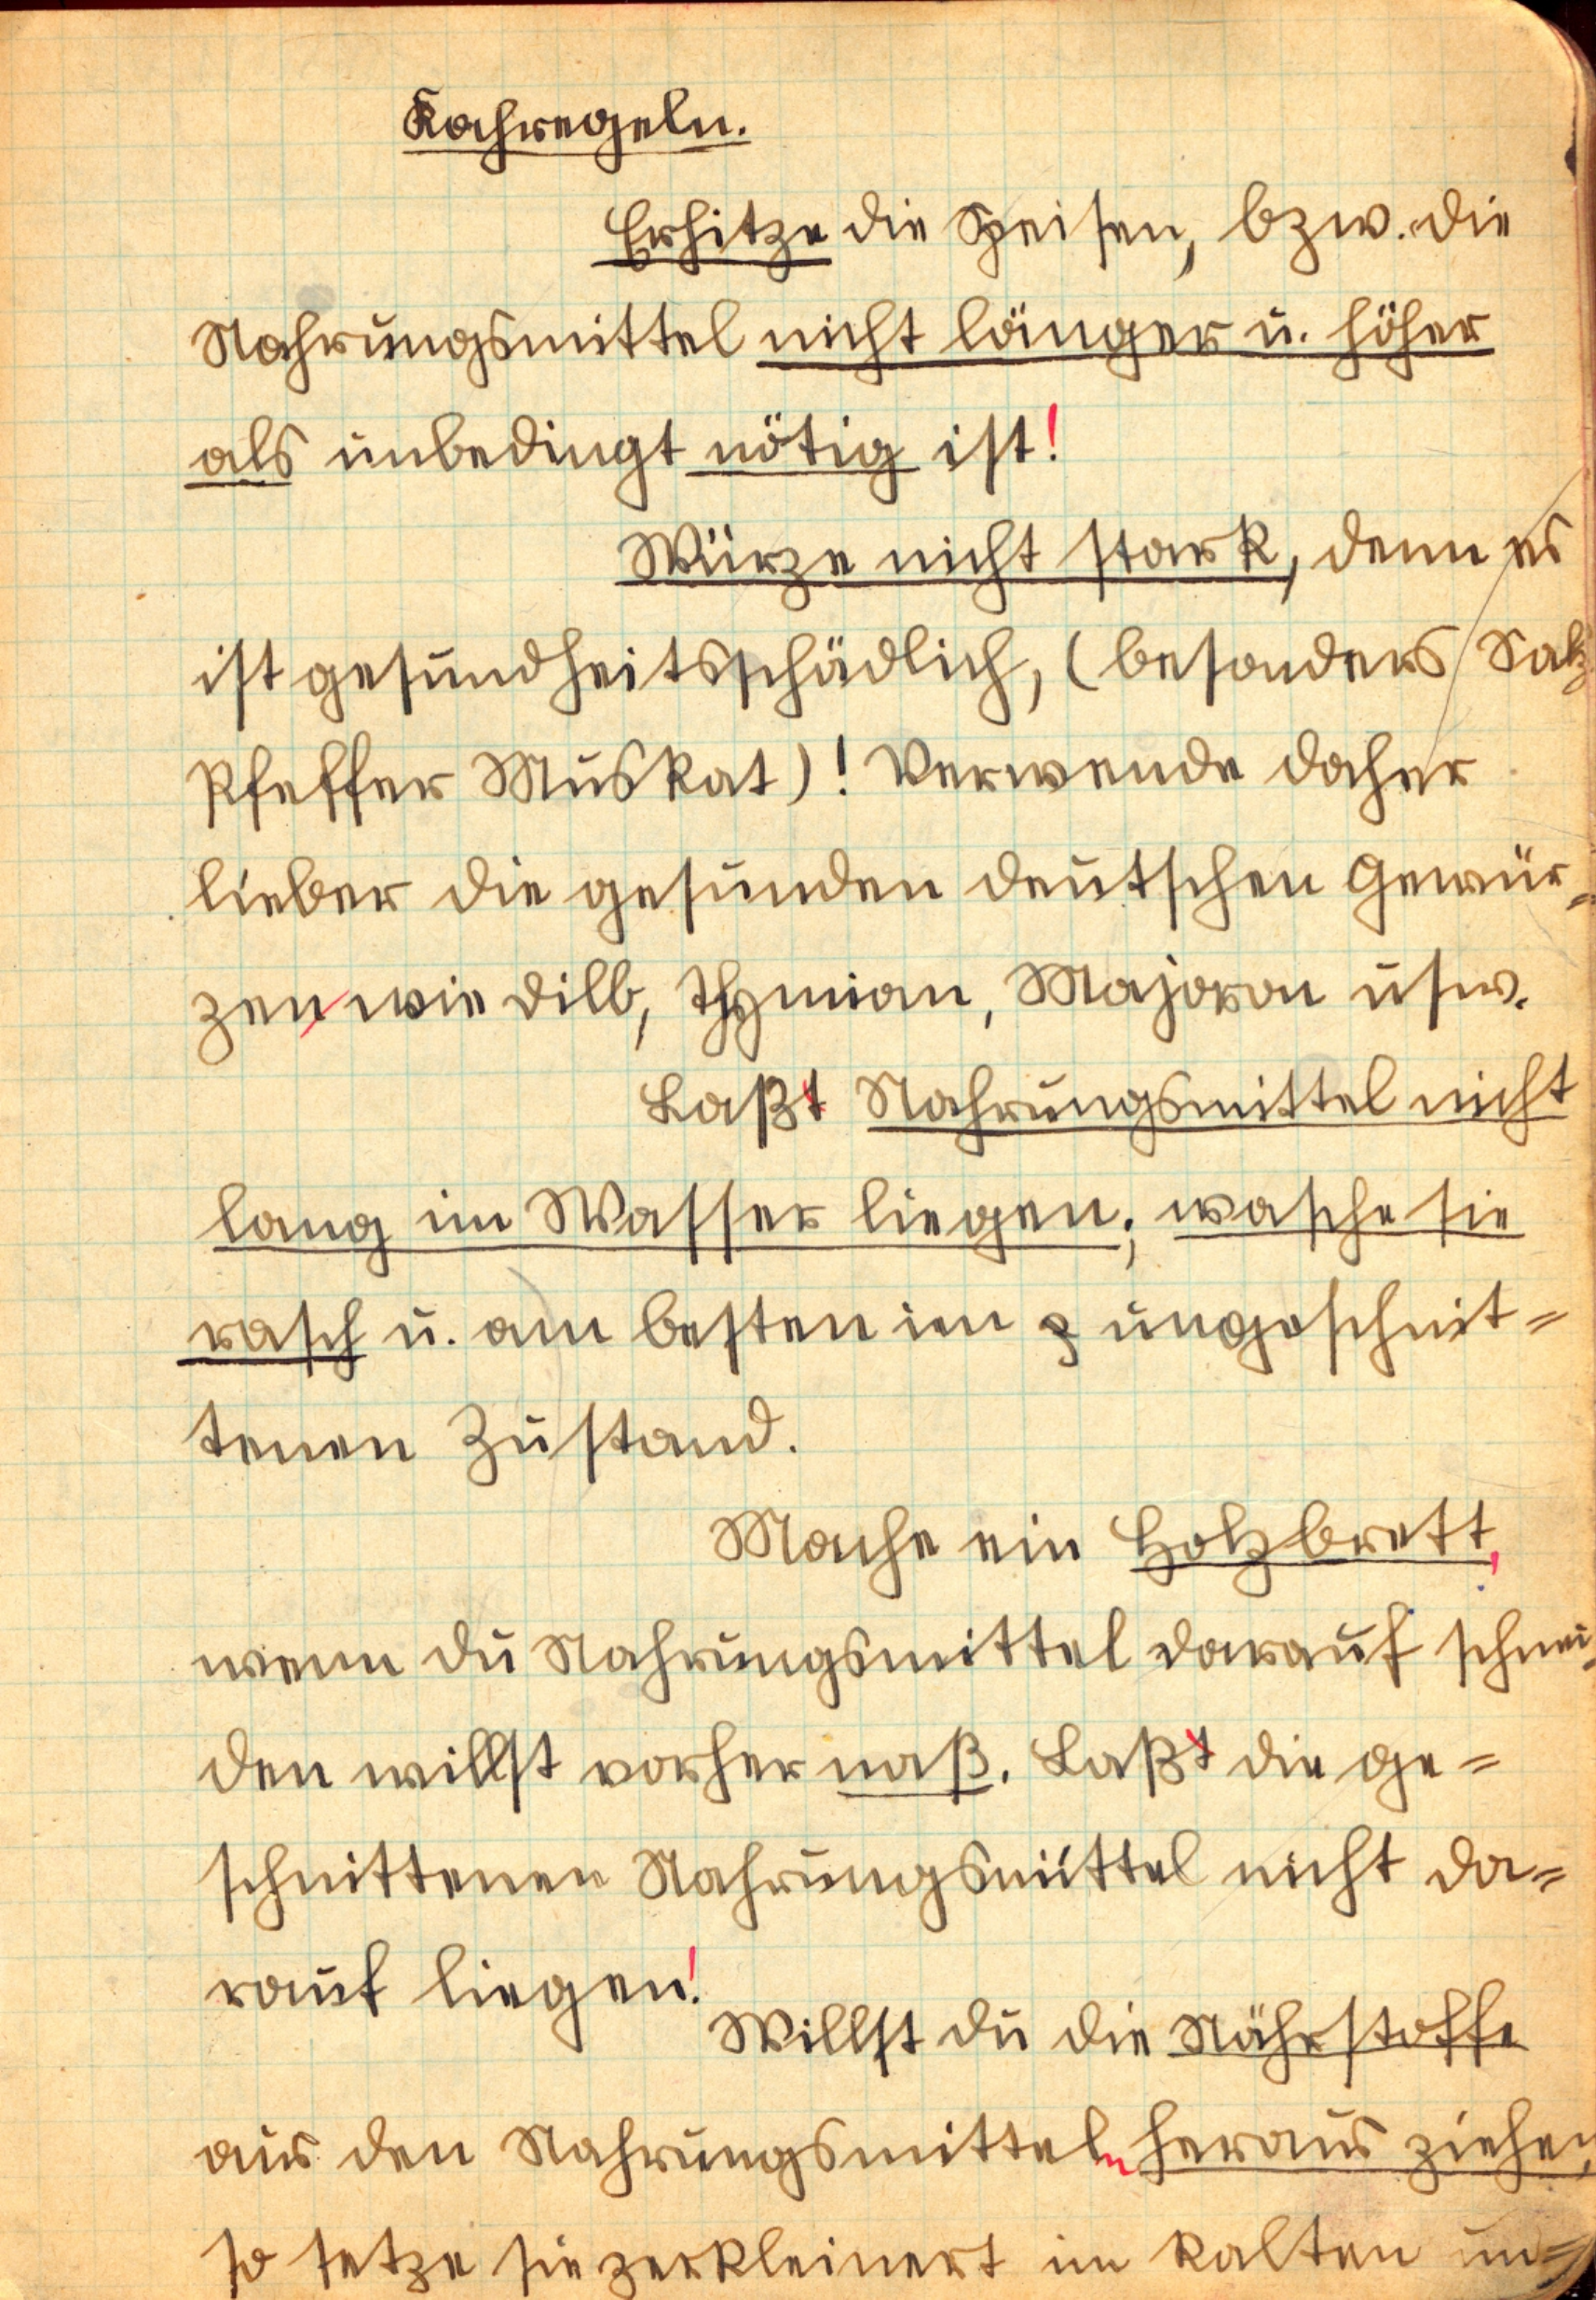 Kochregeln.
Erhitze die Speisen, bzw. die
Nahrungsmittel nicht länger u. höher
als unbedingt nötig ist!
Würze nicht stark, denn es
ist gesundheitsschädlich, (besonders Salz
Pfeffer Muskat)! Verwende daher
lieber die gesunden deutschen Gewür=
zen wie Dill, Thymian, Majoran usw.
Laßt Nahrungsmittel nicht
lang im Wasser liegen; wasche sie
rasch u. am besten im ungeschnit=
tenen Zustand.
Mache ein Holzbrett,
wenn du Nahrungsmittel darauf schnei=
den willst vorher naß. Laßt die ge=
schnittenen Nahrungsmittel nicht da=
rauf liegen!
Willst du die Nährstoffe
aus den Nahrungsmitteln heraus ziehen,
so setze sie zerkleinert im kalten un=